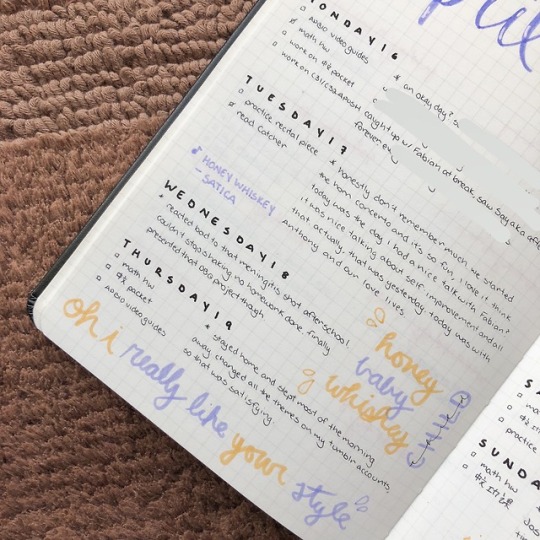 MONDAY16
audio video guides
math hw
work on 中文 packet
* an okay day?
caught up w/ Fabian at break saw Sayaka
forever
TUESDAY17
practice recital piece
read Catcher
♪ HONEY WHISKEY
- SATICA
* honestly don't remember much we started
the horn concerto and it's so fun, i love it i think
today was the day i had a nice talk with Fabian?
it was nice talking about self improvement and all
that. actually, that was yesterday. today was with
Anthony and our love lives
WEDNESDAY18
* reacted bad to that meningitis shot afterschool
couldn't stop shaking no homework done. finally
presented that project though
THURSDAY19
math hw
中文 packet
audio video guides
* stayed home and slept most of the morning
away. changed all the themes on my tumblr accounts,
so that was satisfying.
honey
baby
whiskey
oh i really like your style
SUNDA
math hw
practice